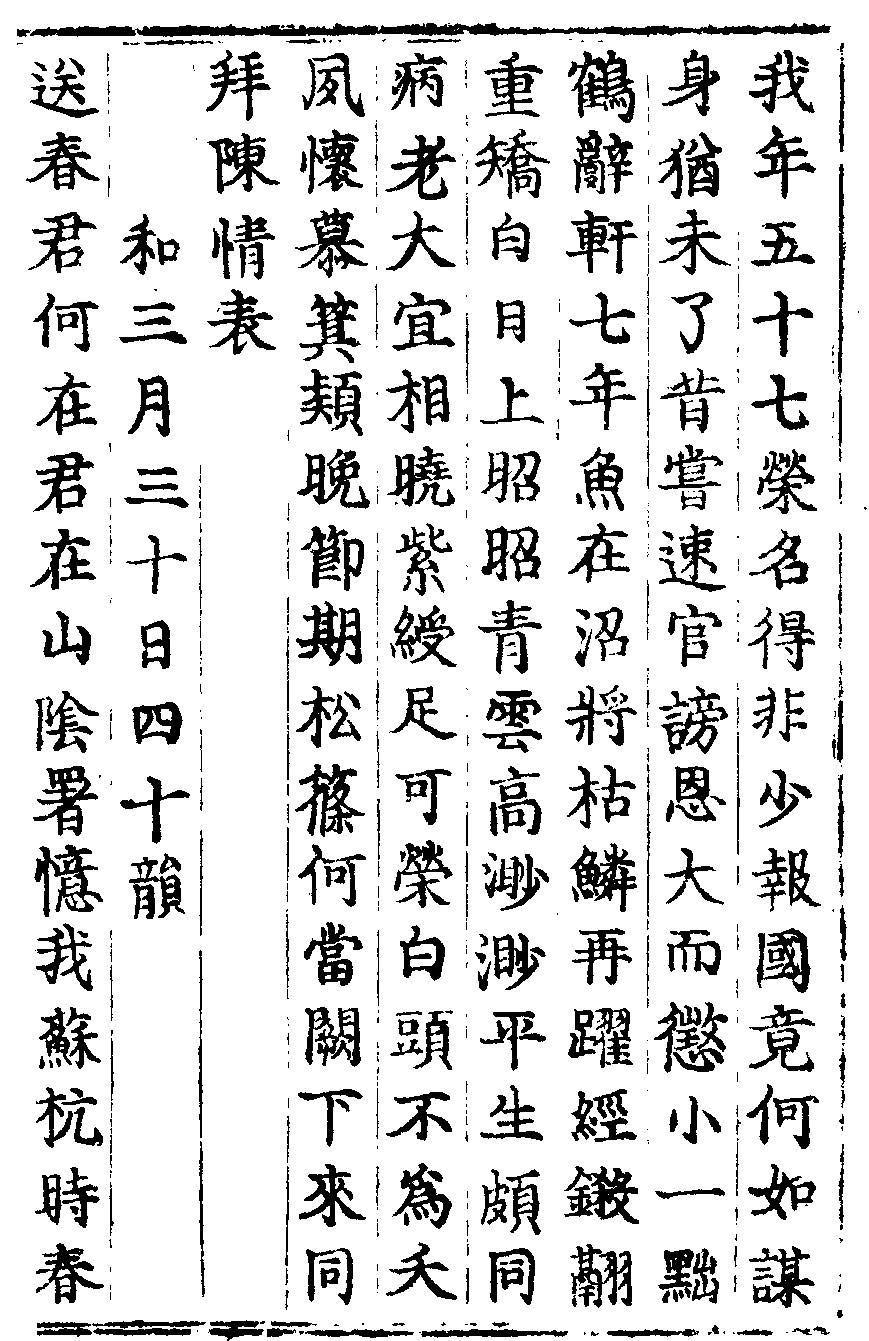 我年五十七榮名得非少報國竟何如謀
身猶未了昔嘗速官謗恩大而懲小一黜
鶴辭軒七年魚在沼將枯鱗再躍經鎩翮
重矯白日上昭昭青雲高渺渺平生頗同
病老大宜相曉紫綬足可榮白頭不為夭
夙懷慕箕潁晚節期松篠何當闕下來同
拜陳情表
和三月三十日四十韻
送春君何在君在山陰署憶我蘇杭時春